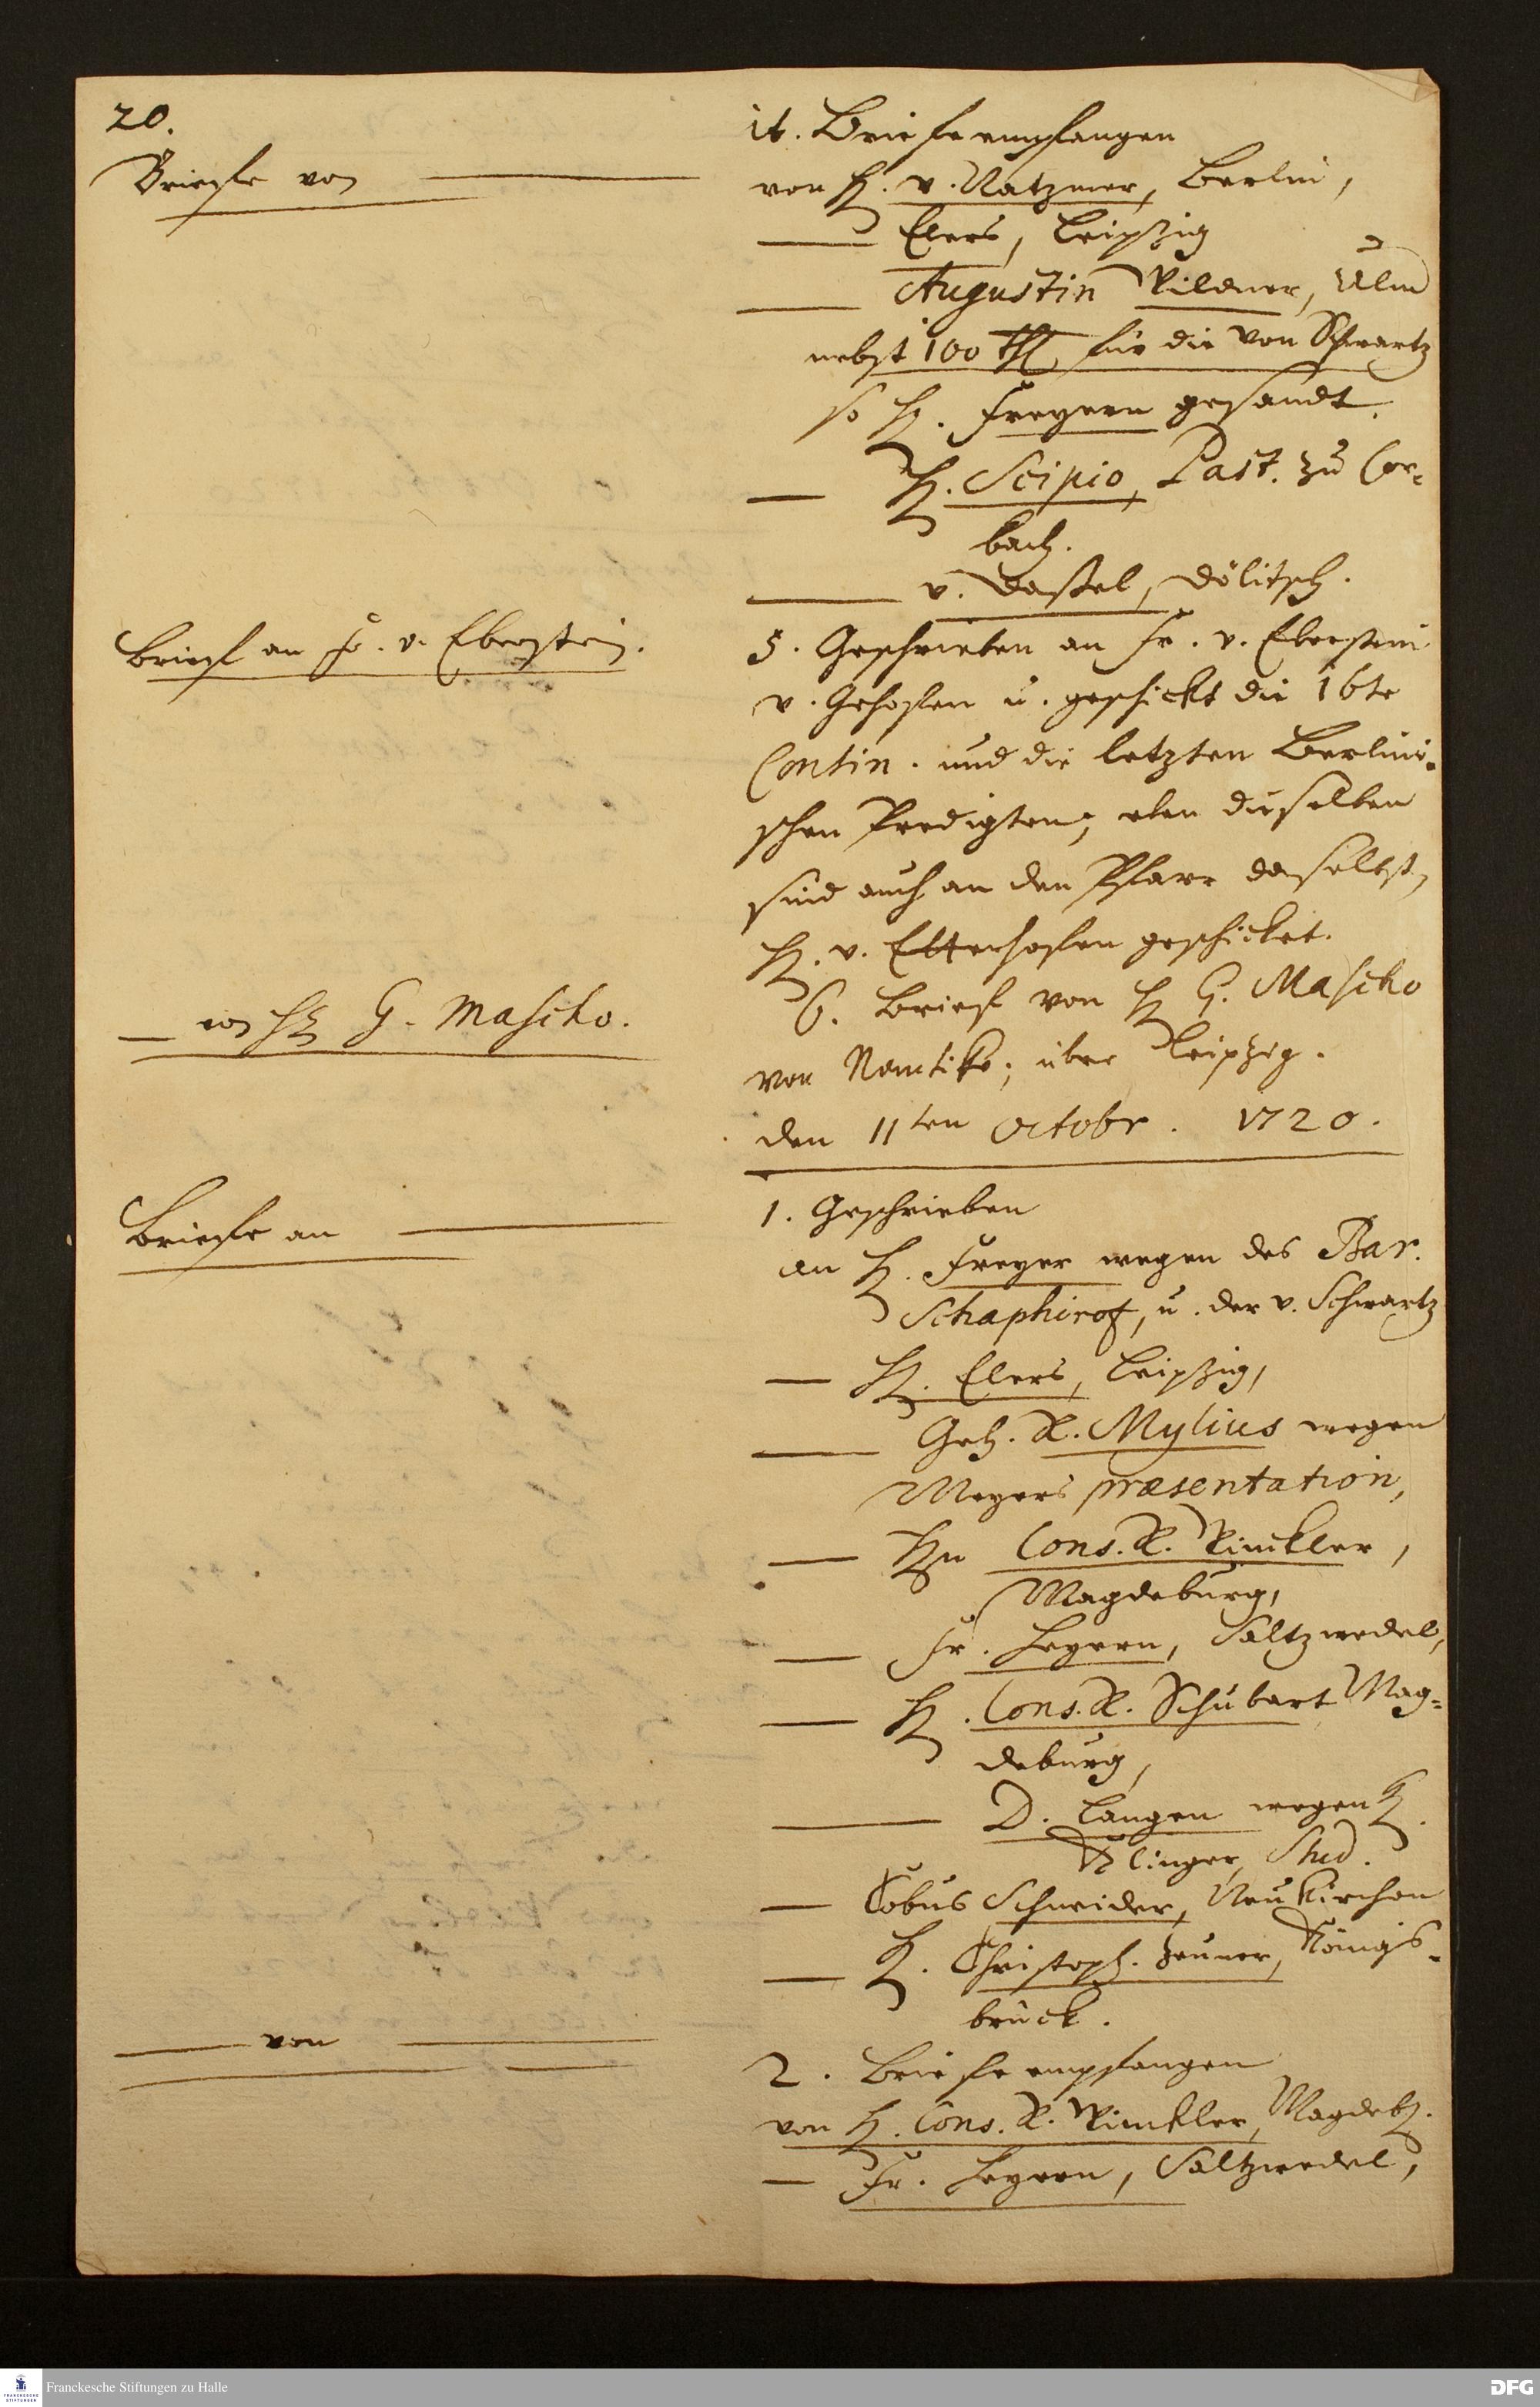 20.
Briefe von
it. Briefe empfangen
von H. v. Natzmer, Berlin,
Elers, Leipzig
Augustin Kildner, Ulm
nebst 100 Thl, für die von Schwartz
so H. Freyern gesandt.
H. Scipio, Past. zu Cor-
bach.
v. Daßel, Dölitsch.
Brief an Fr. v. Eberstein.
5. Geschrieben an Fr. v. Eberstein
v. Gehofen u. geschickt die 16te
Contin. und die letzten Berlini-
schen Predigten, eben dieselben
sind auch an den Pfarr daselbst,
H. v. Etterhofen geschicket.
von HE G. Mascho.
6. Brief von H G. Mascho
von; über Leipzig.
den 11ten Octobr. 1720.
Briefe an
1. Geschrieben
an H. Freyer wegen des Bar.
Schaphirof, u. der v. Schwartz
H. Elers, Leipzig,
Geh. R. Mylius wegen
Meyers præsentation,
Hn Cons. R. Winckler,
Magdeburg,
Fr. Heyern, Saltzwedel,
H. Cons. R. Schubart Mag-
deburg,
D. Langen wegen H.
Klinger, Stud.
Cobus Schneider, Neukirchen
H. Christoph. Zeuner, Königs-
brück.
von
2. Briefe empfangen
von H. Cons. R. Winckler, Magdeb.
Fr. Heyern, Saltzwedel,
Franckesche Stiftungen zu Halle
FRANCKESCHE STIFTUNGEN
DFG